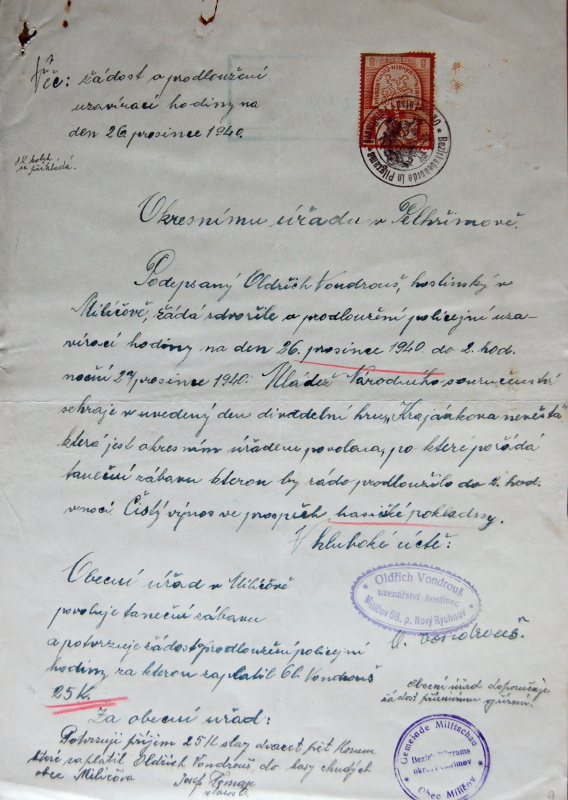 Věc: žádost o prodloužení
uzavírací hodiny na
den 26 prosince 1940.
se přikládá.
Bezirksbehörde in Pilgrams
Okresnímu úřadu v Pelhřimově.
Podepsaný Oldřich Vondrouš, hostinský v
Milíčově, žádá zdvořile o prodloužení policejní uza-
vírací hodiny na den 26. prosince 1940 do 2. hod.
noční 27 prosince 1940. Mládež Národního souručenství
sehraje v uvedený den divadelní hru „Krajánkova nevěsta"
která jest okresním úřadem povolena, po které pořádá
taneční zábavu kterou by rádo prodloužilo do 2. hod.
v noci Čistý výnos ve prospěch hasičské pokladny.
V hluboké úctě:
Oldřich Vondrouš
uzenářství hostinec
Milíčov 58. p. Nový Rychnov
O. Vondrouš.
Obecní úřad v Milíčově
povoluje taneční zábavu
a potvrzuje žádost prodloužení policejní
hodiny za kterou zaplatil Ol. Vondrouš
25 K.
Obecní úřad doporučuje
žádost příznivému
Za obecní úřad:
Potvrzuji příjem 25 K slovy dvacet pět Korun
které zaplatil Oldřich Vondrouš do kasy chudých
obce Milíčova
Josef
starosta
Gemeinde Militschau
Bezirk Pilgrams
okres Pelhřimov
Obec Milíčov